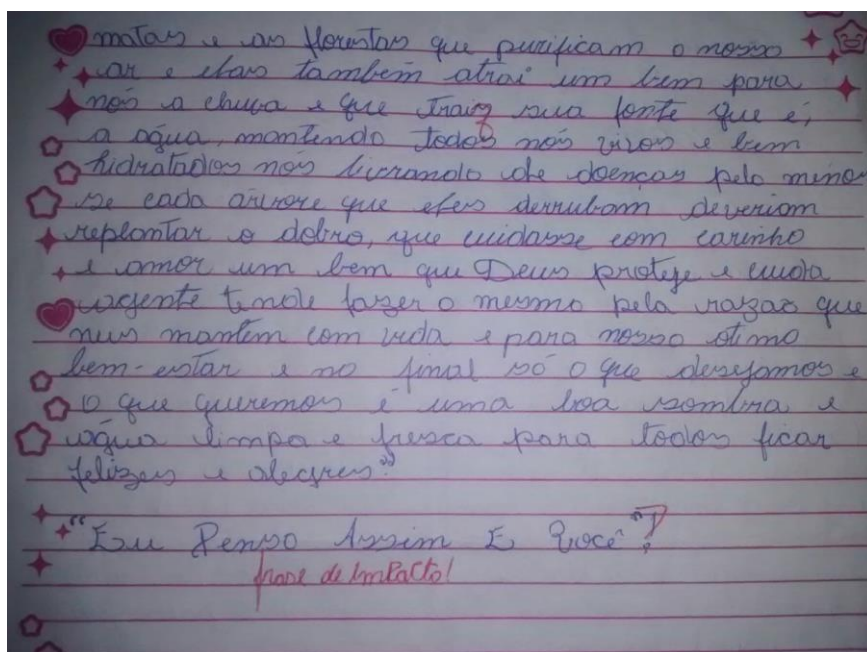 matas e as florestas que purificam o nosso
ar e elas também atrai um bem para
nós a chuva e que traiz sua fonte que é,
a água, mantendo todos nós vivos e bem
hidratados nós livrando de doenças pelo menos
se cada árvore que eles derrubam deveriam
replantar o dobro, que cuidasse com carinho
e amor um bem que Deus proteje e cuida
agente tende fazer o mesmo pela razão que
neus mantém com vida e para nosso otimo
bem-estar e no final só o que desejamos e
o que queremos é uma boa sombra e
água limpa e fresca para todos ficar
felizes e alegres."
"Eu Penso Assim E Você"?
frase de ImPacto!